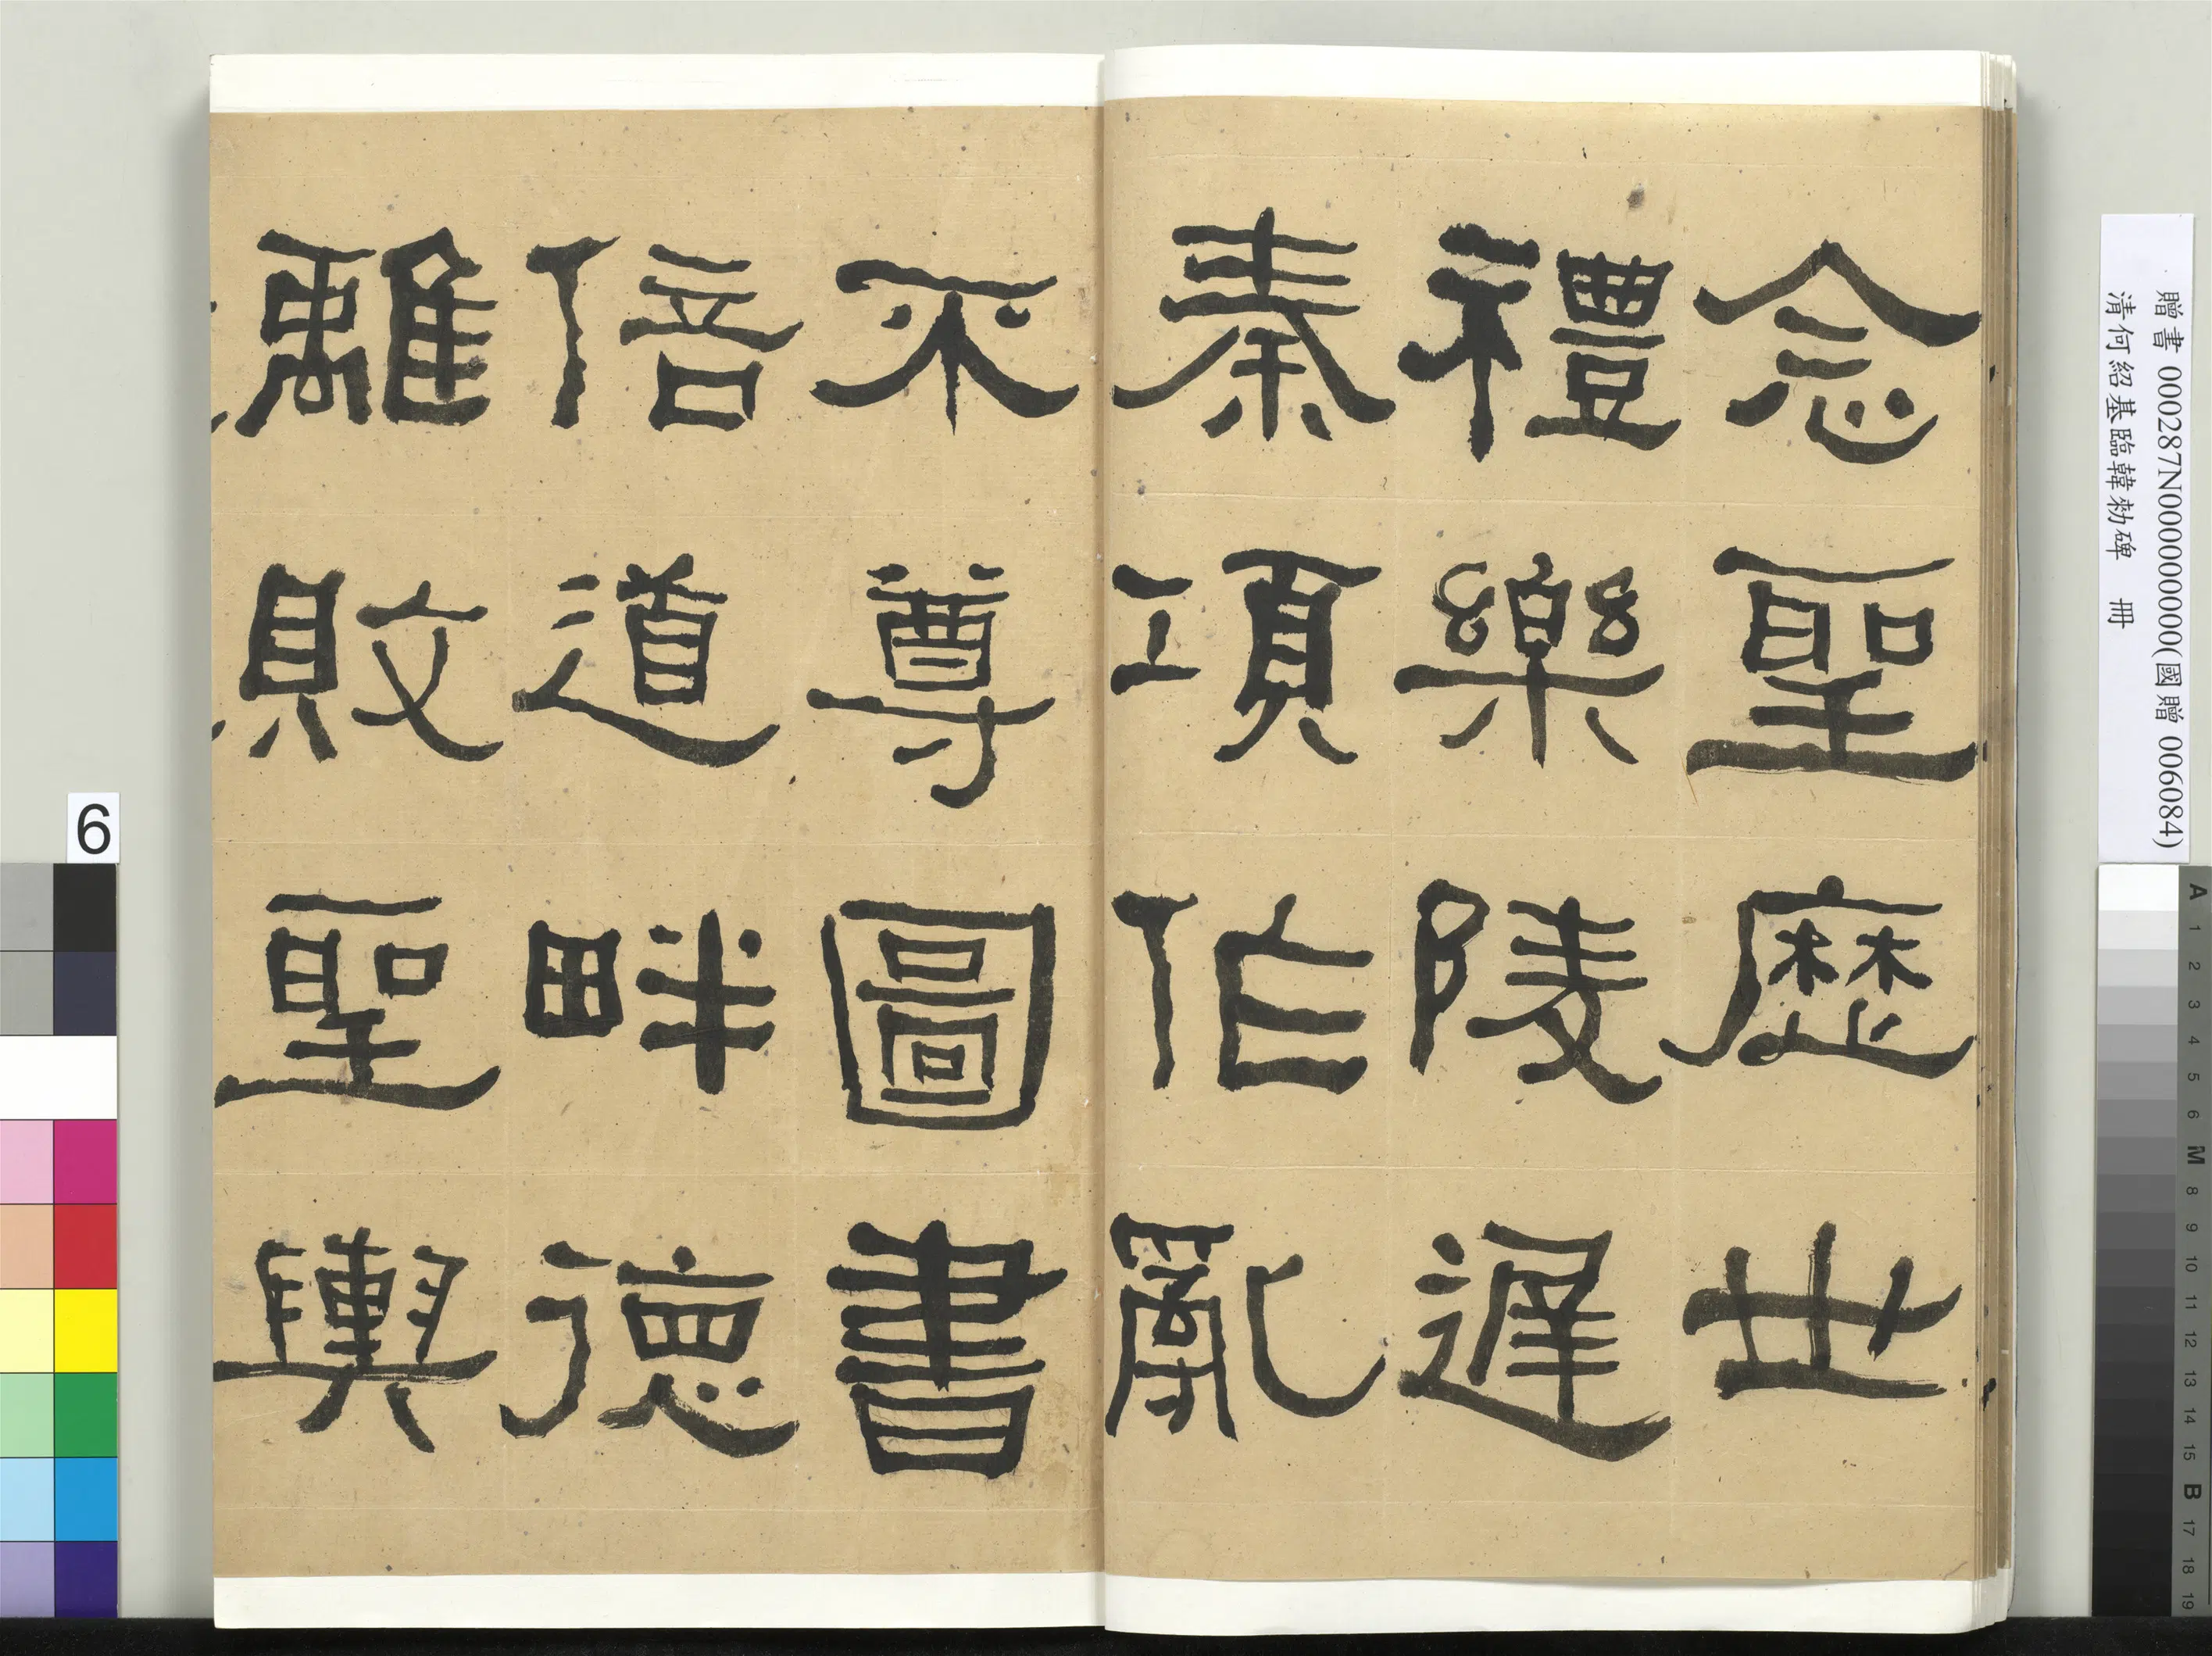 念聖歷世
禮樂陵遲
秦項作亂
不尊圖書
倍道畔德
離敗聖輿
贈書 000287N000000000(國贈 006084)
清何紹基臨韓勑碑 冊
6
A 1 2 3 4 5 6 M 8 9 10 11 12 13 14 15 B 17 18 19